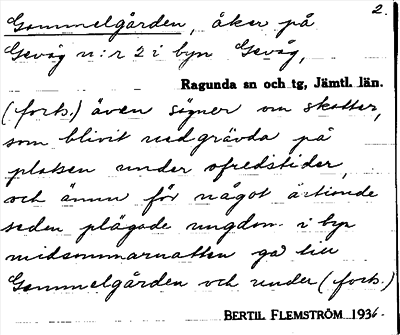 2.
Gammelgården, åker på
Gevåg n:r 2 i byn Gevåg,
Ragunda sn och tg, Jämtl. län.
(forts.) även sägner om skatter,
som blivit nedgrävda på
platsen under ofredstider,
och ännu för något årtionde
sedan plägade ungdom. i byn
midsommarnatten gå till
Gammelgården och under (forts.)
BERTIL FLEMSTRÖM 1936.